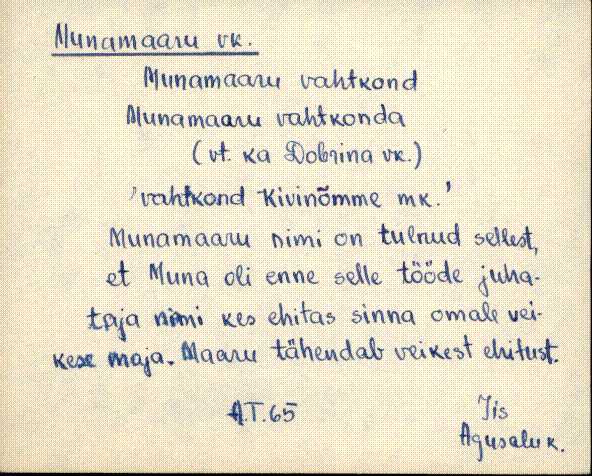 Munamaaru vk.
Munamaaru vahtkond
Munamaaru vahtkonda
(vt. ka Dobrina vk.)
'vahtkond Kivinõmme mk.'
Munamaaru nimi on tulnud sellest,
et Muna oli enne selle tööde juha-
taja nimi kes ehitas sinna omale vei-
kese maja. Maaru tähendab veikest ehitust.
A.T. 65 Iis
Agusalu k.